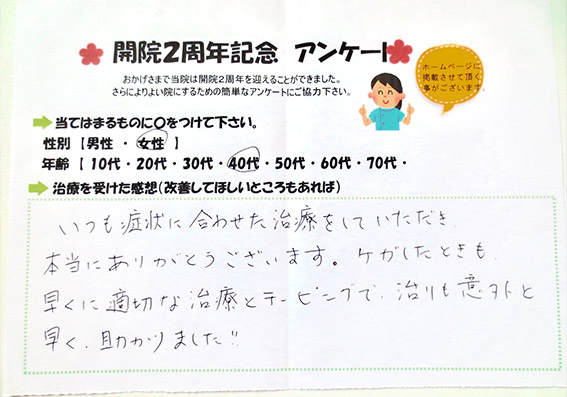 開院2周年記念 アンケート
おかげさまで当院は開院2周年を迎えることができました。
さらによりよい院にするための簡単なアンケートにご協力下さい。
ホームページに
掲載させて頂く
事がございます。
当てはまるものに〇をつけて下さい。
性別 【 男性 ・ 女性 】
年齢 【 10代・20代・30代・40代・50代・60代・70代・
治療を受けた感想(改善してほしいところもあれば)
いつも症状に合わせた治療をしていただき
本当にありがとうございます。ケガしたときも
早くに適切な治療とテーピングで、治りも意外と
早く、助かりました!!